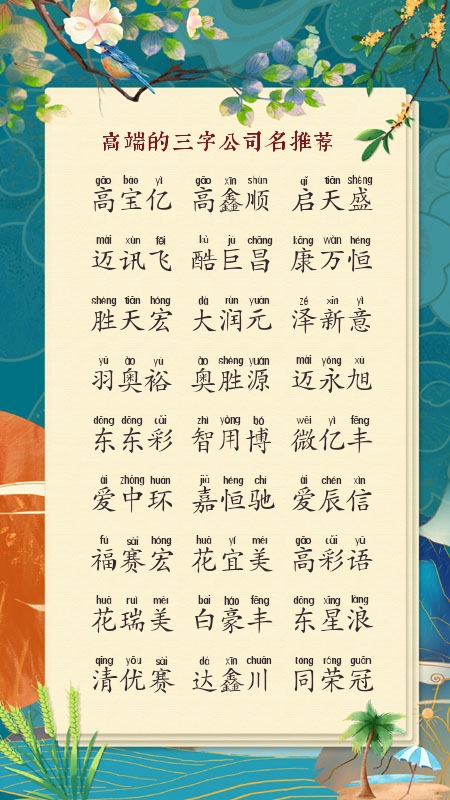 高端的三字公司名推荐
gāo bǎo yì gāo xīn shùn qǐ tiān shèng
高宝亿 高鑫顺 启天盛
mài xùn fēi kù jù chāng kāng wàn héng
迈讯飞 酷巨昌 康万恒
shèng tiān hóng dà rùn yuán zé xīn yì
胜天宏 大润元 泽新意
yǔ ào yù ào shèng yuán mài yǒng xù
羽奥裕 奥胜源 迈永旭
dōng dōng cǎi zhì yòng bó wēi yì fēng
东东彩 智用博 微亿丰
ài zhōng huán jiā héng chí ài chén xìn
爱中环 嘉恒驰 爱辰信
fú sài hóng huā yí měi gāo cǎi yǔ
福赛宏 花宜美 高彩语
huā ruì měi bái háo fēng dōng xīng làng
花瑞美 白豪丰 东星浪
qīng yōu sài dá xīn chuān tóng róng guān
清优赛 达鑫川 同荣冠